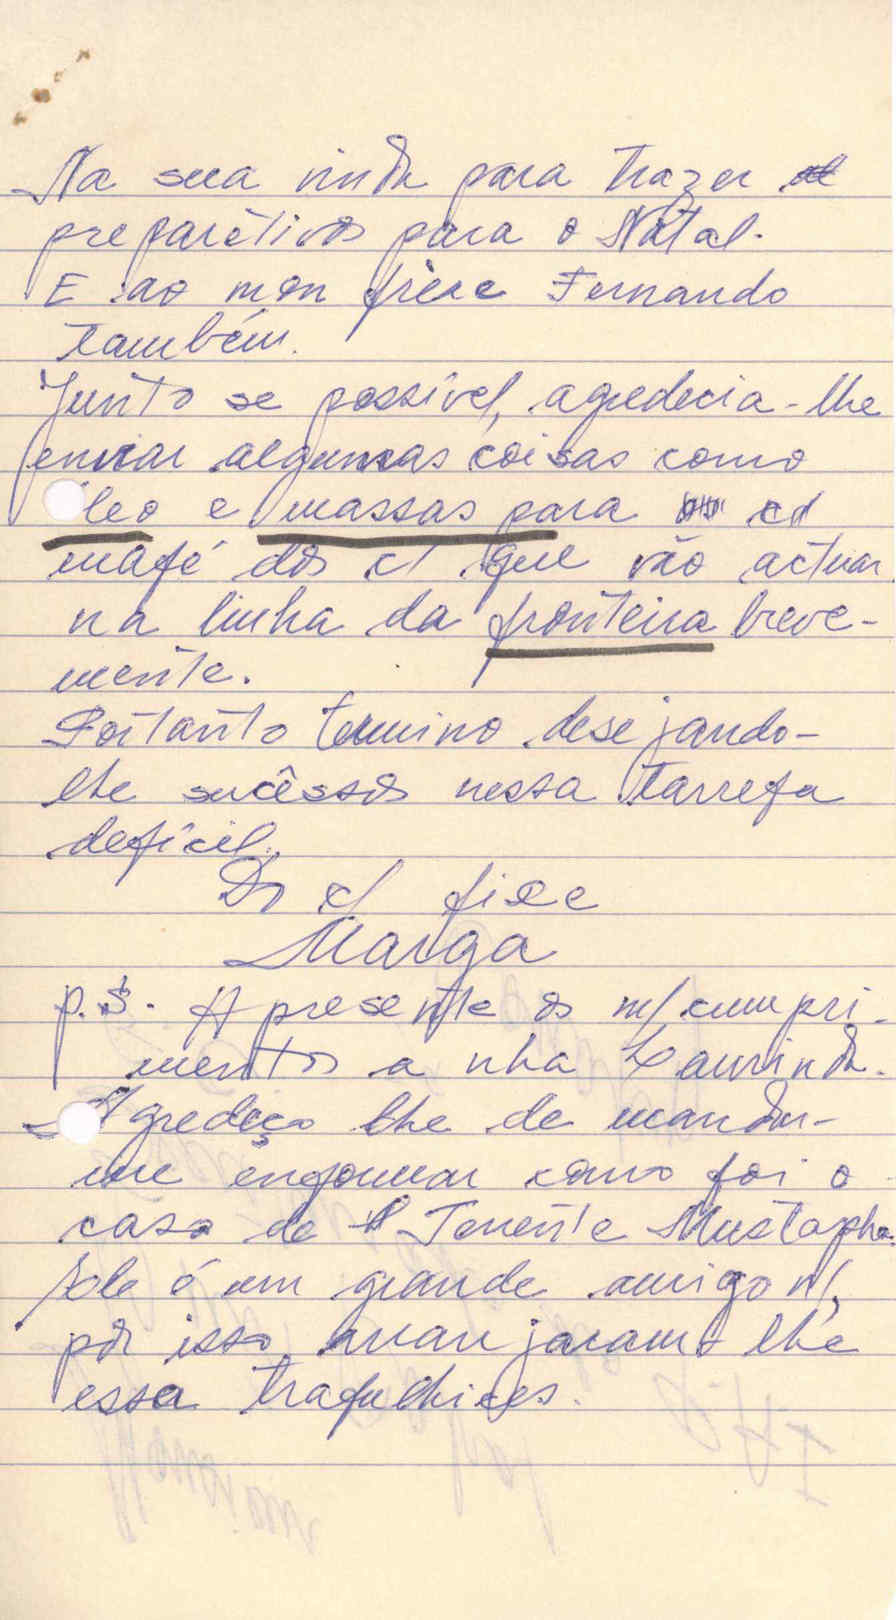 Na sua vinda para trazer
preparativos para o Natal.
E ao mon frère Fernando
também.
Junto se possível, agredecia-lhe
enviar algumas coisas como
óleo e massas para
mafé dos cl que vão actuar
na linha da fronteira breve-
mente.
Portanto termino desejando-
lhe sucêssos nessa tarrefa
defícil.
Do cl
Marga
p.s. Apresente os m/ cumpri-
mentos a nha Laurinda.
Agredeço lhe de mandar-
me engomar como foi o
caso de Tenente Mustapha.
Ele é um grande amigo n/,
por isso arranjaram lhe
essa trafulhices.